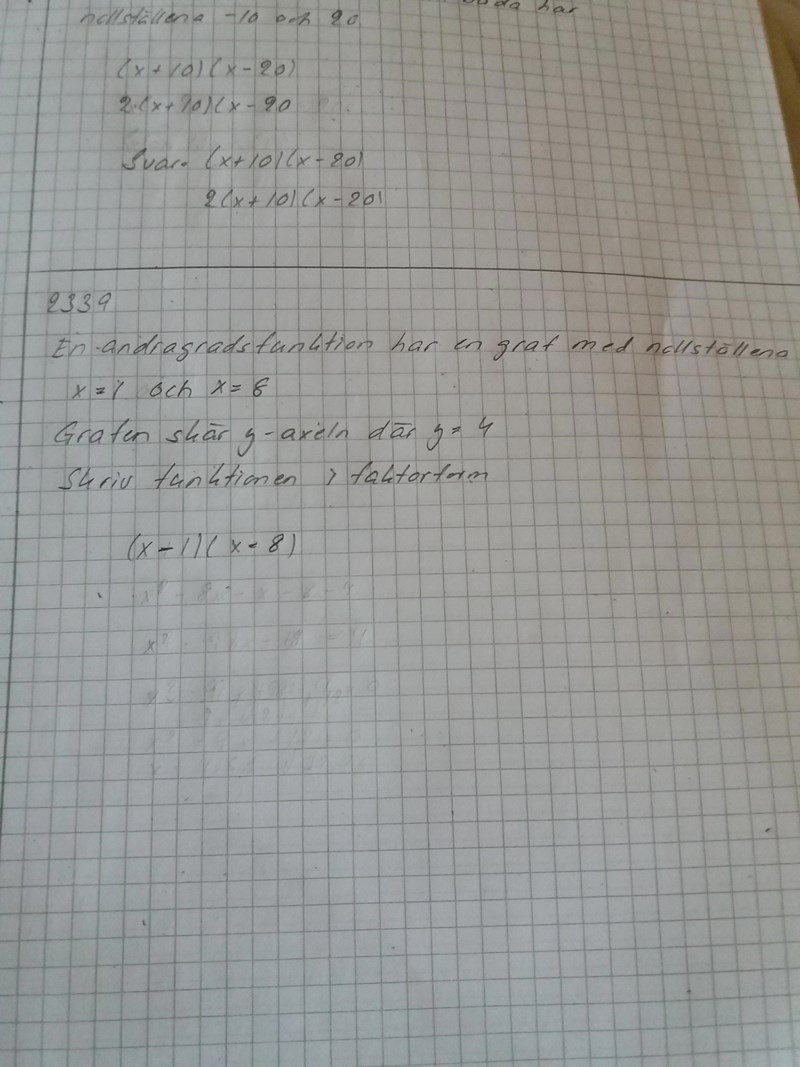 nollställena -10 och 20
(x+10)(x-20)
2·(x+10)(x-20
Svar. (x+10)(x-20)
2(x+10)(x-20)
2339
En andragradsfunktion har en graf med nollställena
x=1 och x=8
Grafen skär y-axeln där y=4
Skriv funktionen i faktorform
(x-1)(x-8)